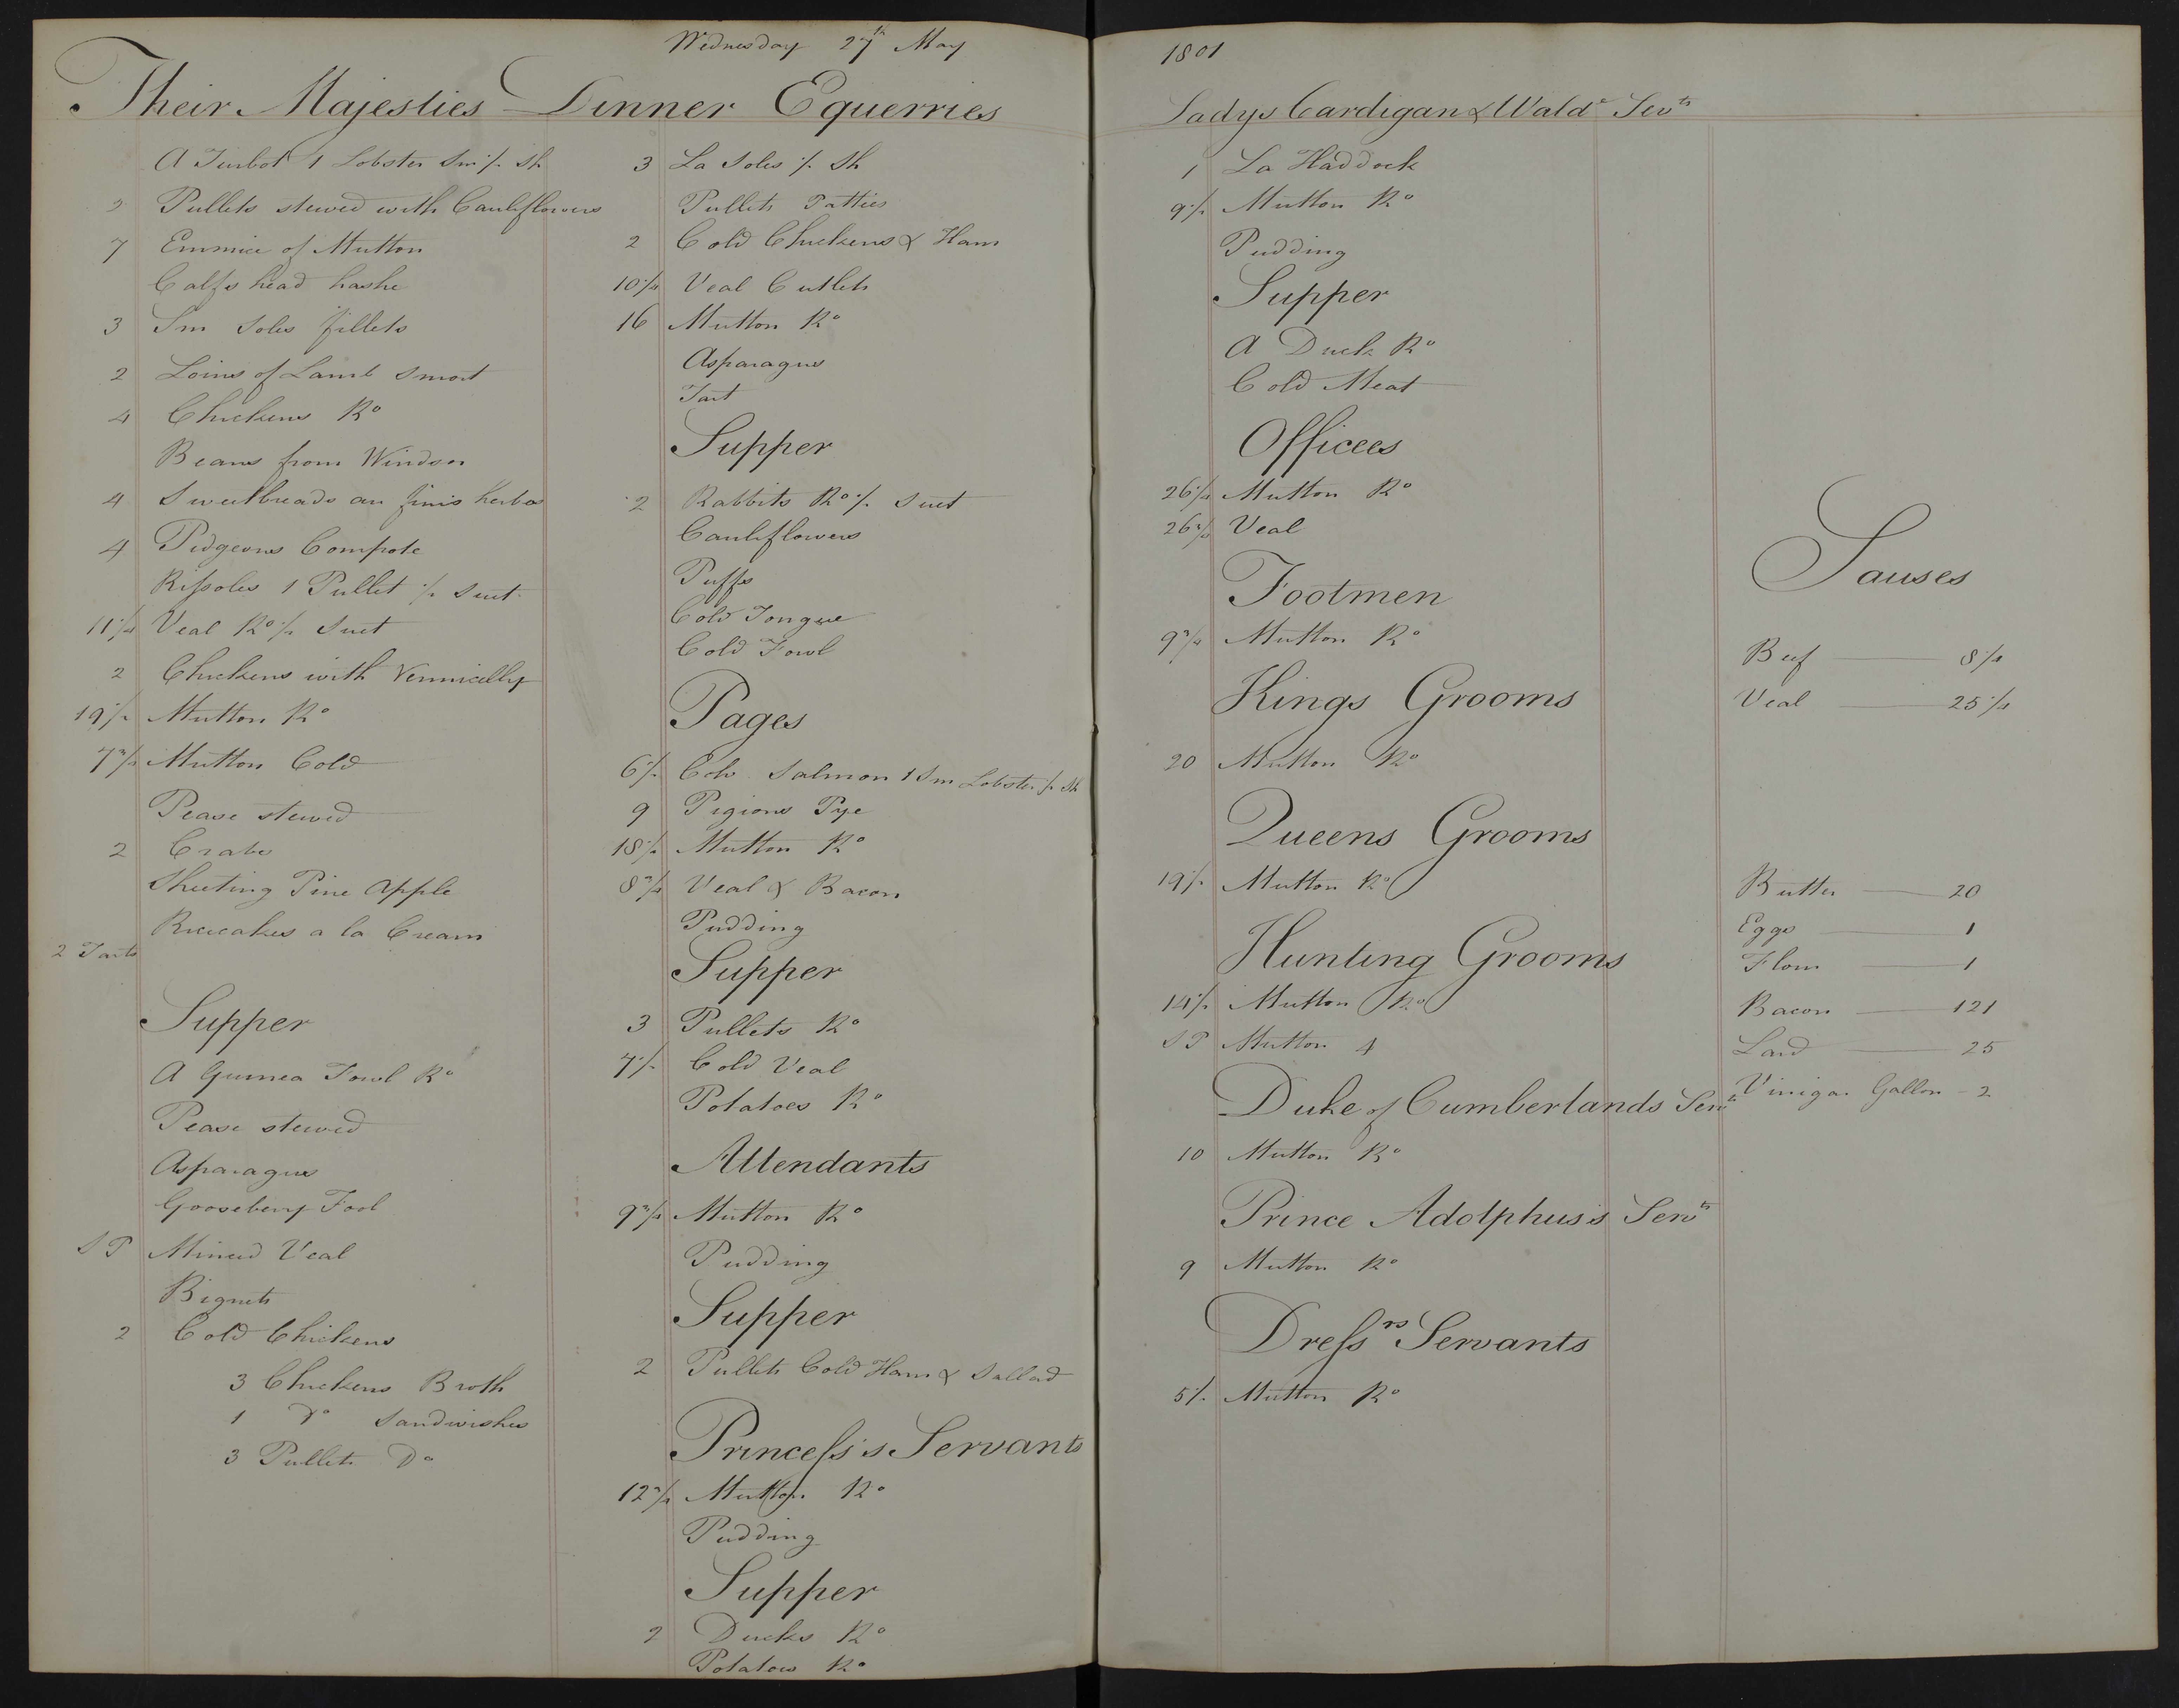 Wednesday 27th May
Their Majesties Dinner
A Turbot 1 Lobster Sm ½ Sh
2 Pullets stewed with Cauliflowers
7 Emmice of Mutton
Calfs head hashe
3 Sm Soles fillets
2 Loins of Lamb Smort
4 Chickens Ro
Beans from Windsor
4 Sweetbreads au finis herbes
4 Pidgeons Compote
Rissoles 1 Pullet ½ Suet
11¼ Veal Ro ½ Suet
2 Chickens with Vermicelly
19½ Mutton Ro
7¾ Mutton Cold
Pease stewed
2 Crabs
Sheeting Pine Apple
Ricecakes a la Cream
2 Tarts
Supper
A Guinea Fowl Ro
Pease stewed
Asparagus
Gooseberry Fool
S P Minced Veal
Bignets
2 Cold Chickens
3 Chickens Broth
1 Do Sandwishes
3 Pullets Do
Equerries
3 La Soles ½ Sh
Pullets Patties
2 Cold Chickens & Ham
10¼ Veal Cutlets
16 Mutton Ro
Asparagus
Tart
Supper
2 Rabbits Ro ½ Suet
Cauliflowers
Puffs
Cold Tongue
Cold Fowl
Pages
6½ Salmon 1 Sm Lobster ½ Sh
9 Pigions Pye
18½ Mutton Ro
8¾ Veal & Bacon
Pudding
Supper
3 Pullets Ro
7½ Cold Veal
Potatoes Ro
Attendants
9¾ Mutton Ro
Pudding
Supper
2 Pullets Cold Ham & Sallad
Princess's Servants
12¾ Mutton Ro
Pudding
Supper
2 Ducks Ro
Potatoes Ro
1801
Ladys Cardigan & Walde Servts
1 La Haddock
9½ Mutton Ro
Pudding
Supper
A Duck Ro
Cold Meat
Officees
26¼ Mutton Ro
26¾ Veal
Footmen
9¾ Mutton Ro
Kings Grooms
20 Mutton Ro
Queens Grooms
19½ Mutton Ro
Hunting Grooms
14½ Mutton Ro
S P Mutton 4
Duke of Cumberlands Servts
10 Mutton Ro
Prince Adolphus's Servts
9 Mutton Ro
Dressrs Servants
5½ Mutton Ro
Sauses
Beef 8¼
Veal 25¼
Butter 20
Eggs 1
Flour 1
Bacon 121
Lard 25
Vinigar Gallon - 2